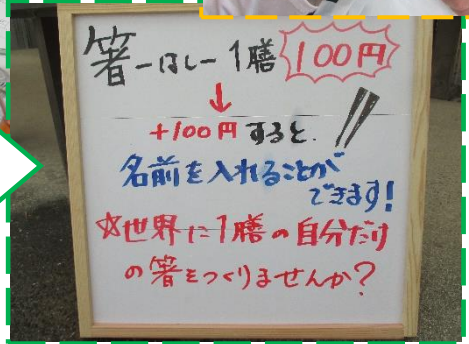 箸-はし-1膳 100円
↓
+100円すると.
名前を入れることが
できます!
☆世界に1膳の自分だけ
の箸をつくりませんか?